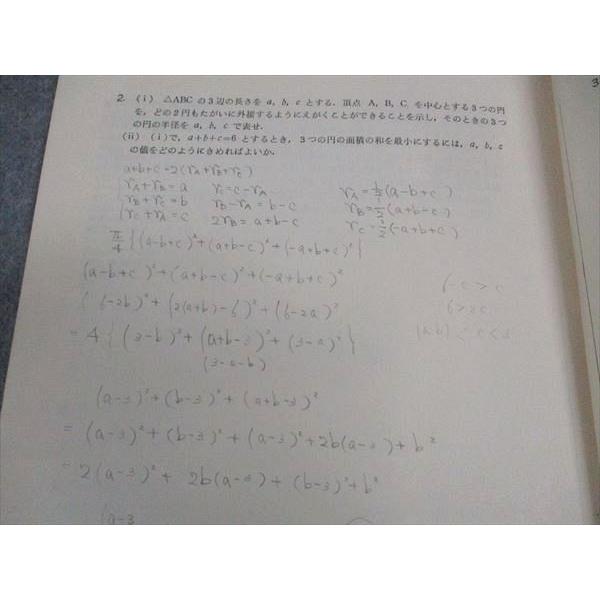 2 (i) △ABC の3辺の長さを a, b, c とする. 頂点 A, B, C を中心とする3つの円
を, どの2円もたがいに外接するようにえがくことができることを示し, そのときの3つ
の円の半径を a, b, c で表せ.
(ii) (i)で, a+b+c=6 とするとき, 3つの円の面積の和を最小にするには, a, b, c
の値をどのようにきめればよいか.
a+b+c=2(r_A+r_B+r_C)
r_A+r_B=a r_C=c-r_A r_A=1/2(a-b+c)
r_B+r_C=b r_B-r_A=b-c r_B=1/2(a+b-c)
r_C+r_A=c 2r_B=a+b-c r_C=1/2(-a+b+c)
π/4{(a-b+c)²+(a+b-c)²+(-a+b+c)²}
(a-b+c)²+(a+b-c)²+(-a+b+c)²
(6-2b)²+(2(a+b)-6)²+(6-2a)²
6-c>c
6>2c
=4{(3-b)²+(a+b-3)²+(3-a)²}
c<3
(3-a-b)
(a-3)²+(b-3)²+(a+b-3)²
=(a-3)²+(b-3)²+(a-3)²+2b(a-3)+b²
=2(a-3)²+2b(a-3)+(b-3)²+b²
(a-3
3